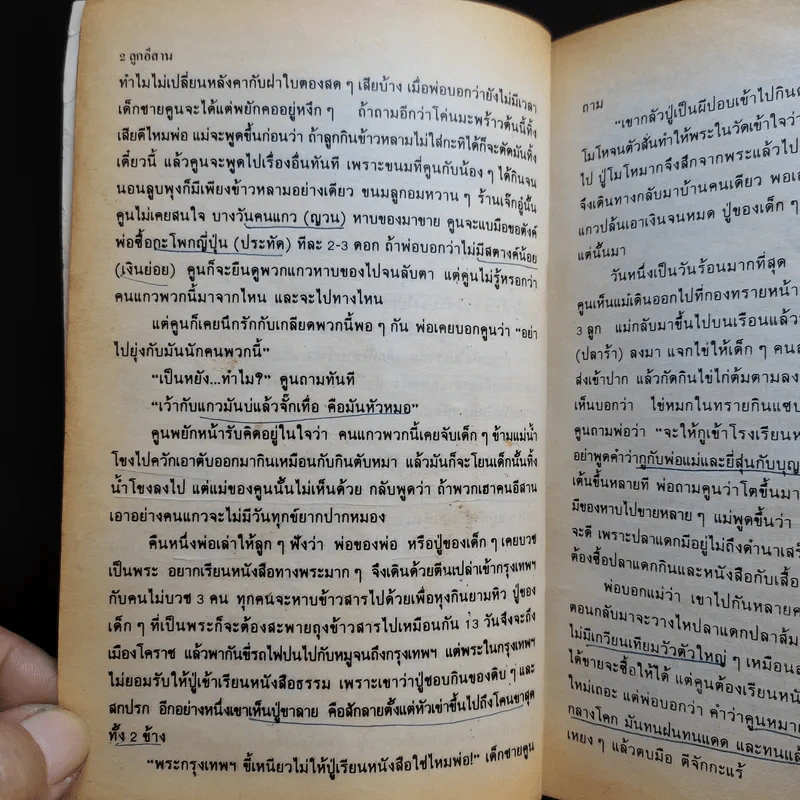 2 ลูกอีสาน
ทำไมไม่เปลี่ยนหลังคากับฝาใบตองสด ๆ เสียบ้าง เมื่อพ่อบอกว่ายังไม่มีเวลา
เด็กชายคูนจะได้แต่พยักคออยู่หงึก ๆ ถ้าถามอีกว่าโค่นมะพร้าวต้นนี้ทิ้ง
เสียดีไหมพ่อ แม่จะพูดขึ้นก่อนว่า ถ้าลูกกินข้าวหลามไม่ใส่กะทิได้ก็จะตัดมันทิ้ง
เดี๋ยวนี้ แล้วคูนจะพูดไปเรื่องอื่นทันที เพราะขนมที่คูนกับน้อง ๆ ได้กินจน
นอนลูบพุงก็มีเพียงข้าวหลามอย่างเดียว ขนมลูกอมหวาน ๆ ร้านเจ๊กอู๋นั้น
คูนไม่เคยสนใจ บางวันคนแกว (ญวน) หาบของมาขาย คูนจะแบมือขอตังค์
พ่อซื้อกะโพกญี่ปุ่น (ประทัด) ทีละ 2-3 ดอก ถ้าพ่อบอกว่าไม่มีสตางค์น้อย
(เงินย่อย) คูนก็จะยืนดูพวกแกวหาบของไปจนลับตา แต่คูนไม่รู้หรอกว่า
คนแกวพวกนี้มาจากไหน และจะไปทางไหน
แต่คูนก็เคยนึกรักกับเกลียดพวกนี้พอ ๆ กัน พ่อเคยบอกคูนว่า "อย่า
ไปยุ่งกับมันนักคนพวกนี้"
"เป็นหยัง...ทำไม?" คูนถามทันที
"เว้ากับแกวมันบ่แล้วจั๊กเทื่อ คือมันหัวหมอ"
คูนพยักหน้ารับคิดอยู่ในใจว่า คนแกวพวกนี้เคยจับเด็ก ๆ ข้ามแม่น้ำ
โขงไปควักเอาตับออกมากินเหมือนกับกินตับหมา แล้วมันก็จะโยนเด็กนั้นทิ้ง
น้ำโขงลงไป แต่แม่ของคูนนั้นไม่เห็นด้วย กลับพูดว่า ถ้าพวกเฮาคนอีสาน
เอาอย่างคนแกวจะไม่มีวันทุกข์ยากปากหมอง
คืนหนึ่งพ่อเล่าให้ลูก ๆ ฟังว่า พ่อของพ่อ หรือปู่ของเด็ก ๆ เคยบวช
เป็นพระ อยากเรียนหนังสือทางพระมาก ๆ จึงเดินด้วยตีนเปล่าเข้ากรุงเทพฯ
กับคนไม่บวช 3 คน ทุกคนจะหาบข้าวสารไปด้วยเพื่อหุงกินยามหิว ปู่ของ
เด็ก ๆ ที่เป็นพระก็จะต้องสะพายถุงข้าวสารไปเหมือนกัน 13 วันจึงจะถึง
เมืองโคราช แล้วพากันขี่รถไฟปนไปกับหมูจนถึงกรุงเทพฯ แต่พระในกรุงเทพฯ
ไม่ยอมรับให้ปู่เข้าเรียนหนังสือธรรม เพราะเขาว่าปู่ชอบกินของดิบ ๆ และ
สกปรก อีกอย่างหนึ่งเขาเห็นปู่ขาลาย คือสักลายตั้งแต่หัวเข่าขึ้นไปถึงโคนขาสุด
ทั้ง 2 ข้าง
"พระกรุงเทพฯ ขี้เหนียวไม่ให้ปู่เรียนหนังสือใช่ไหมพ่อ!" เด็กชายคูน
ถาม
"เขากลัวปู่เป็นผีปอบเข้าไปกิน
โมโหจนตัวสั่นทำให้พระในวัดเข้าใจว่า
ไป ปู่โมโหมากจึงสึกจากพระแล้วไป
จึงเดินทางกลับมาบ้านคนเดียว พอ
แกวปล้นเอาเงินจนหมด ปู่ของเด็ก ๆ
แต่นั้นมา
วันหนึ่งเป็นวันร้อนมากที่สุด
คูนเห็นแม่เดินออกไปที่กองทรายหน้า
3 ลูก แม่กลับมาขึ้นไปบนเรือนแล้ว
(ปลาร้า) ลงมา แจกไข่ให้เด็ก ๆ คน
ส่งเข้าปาก แล้วกัดกินไข่ไก่ต้มตามลง
เห็นบอกว่า ไข่หมกในทรายกินแซบ
คูนถามพ่อว่า "จะให้กูเข้าโรงเรียน
อย่าพูดคำว่ากูกับพ่อแม่และยี่สุ่นกับบุญ
เต้นขึ้นหลายที พ่อถามคูนว่าโตขึ้นมา
มีของหาบไปขายหลาย ๆ แม่พูดขึ้นว่า
จะดี เพราะปลาแดกมีอยู่ไม่ถึงดำนาเสร็
ต้องซื้อปลาแดกกินและหนังสือกับเสื้อ
พ่อบอกแม่ว่า เขาไปกันหลาย
ตอนกลับมาจะวางไหปลาแดกปลาส้ม
ไม่มีเกวียนเทียมวัวตัวใหญ่ ๆ เหมือน
ได้ขายจะซื้อให้ได้ แต่คูนต้องเรียน
ใหม่เถอะ แต่พ่อบอกว่า คำว่าคูนหมา
กลางโคก มันทนฝนทนแดด และทนแล้
เหยง ๆ แล้วตบมือ ตีจักกะแร้